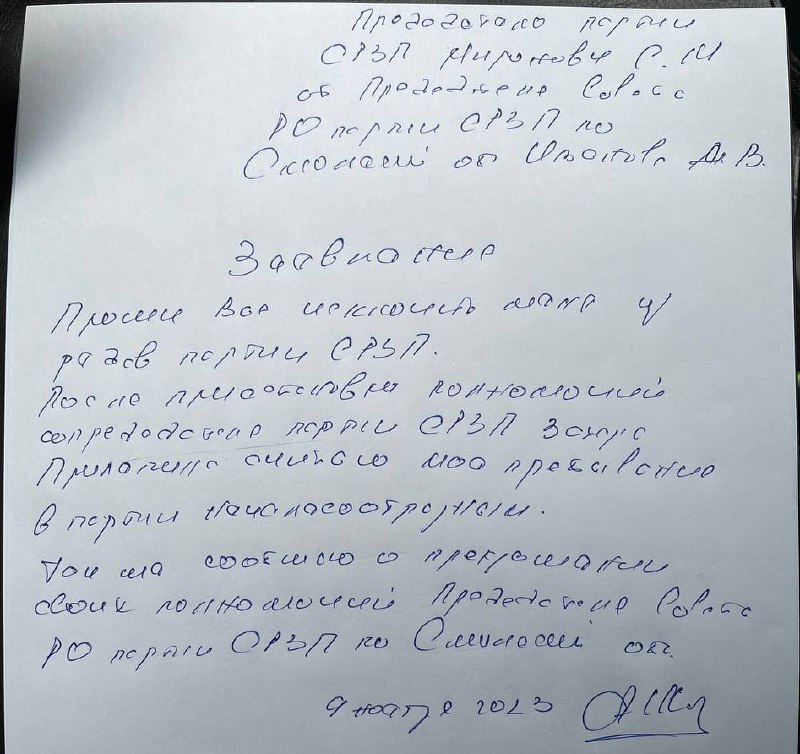 Председателю партии
СРЗП Миронову С.М
от Председателя Совета
РО партии СРЗП по
Смоленской обл Иванова В.
Заявление
Прошу Вас исключить меня из
рядов партии СРЗП.
После приостановки полномочий
сопредседателя партии СРЗП Захара
Прилепина считаю мое пребывание
в партии нецелесообразным.
Так же сообщаю о прекращении
своих полномочий Председателя Совета
РО партии СРЗП по Смоленской обл.
9 ноября 2023